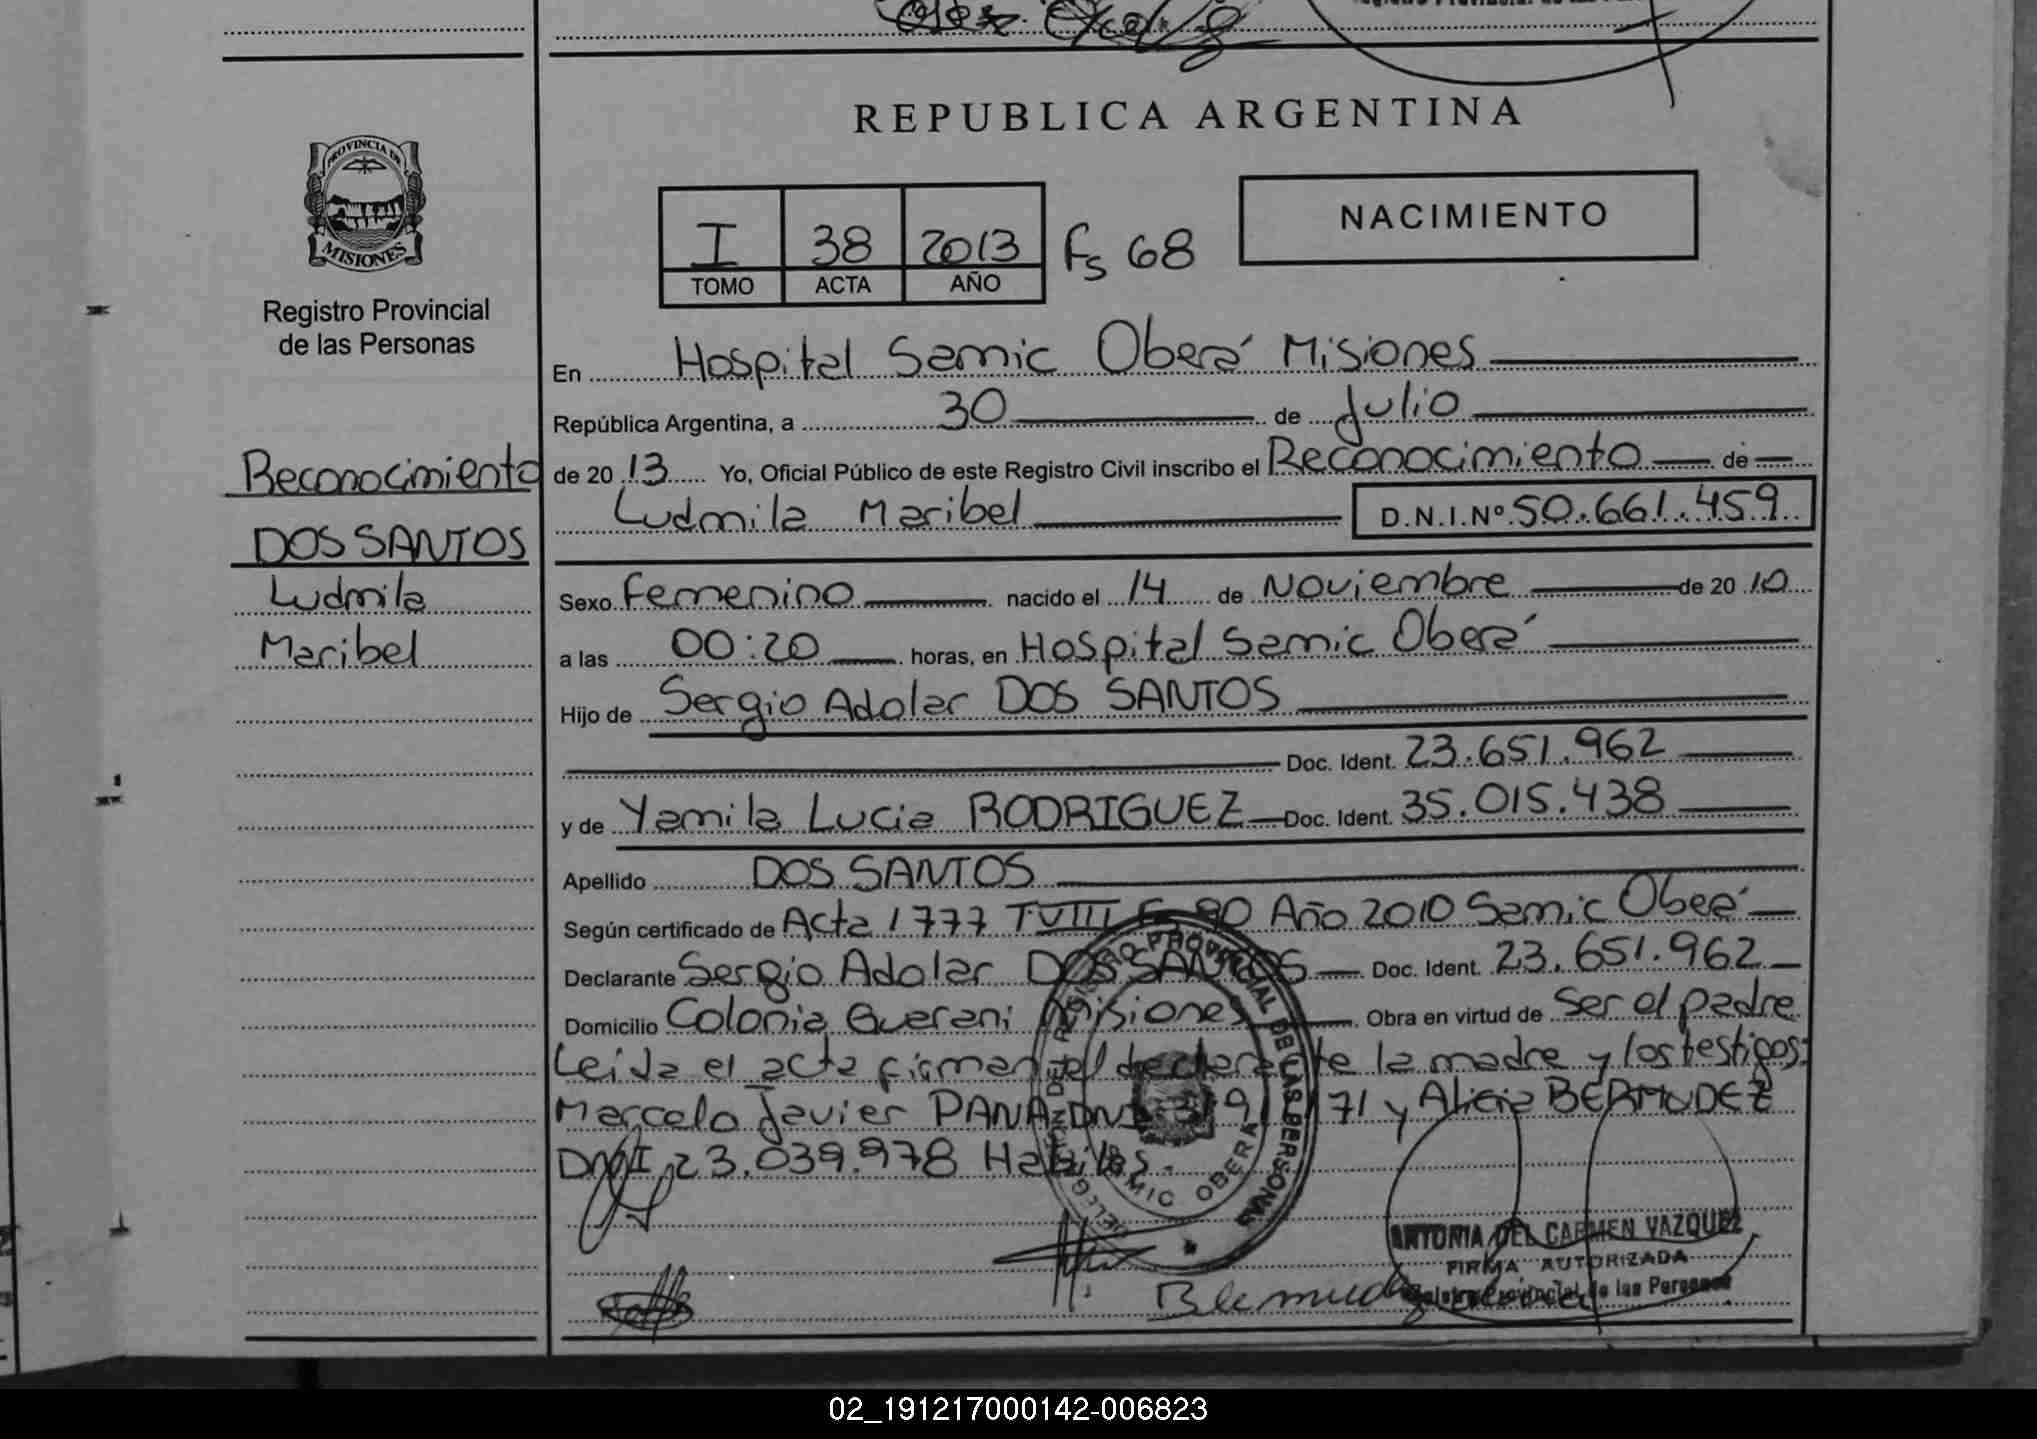 REPUBLICA ARGENTINA
PROVINCIA DE
MISIONES
Registro Provincial
de las Personas
I 38 2013 Fs 68
TOMO ACTA AÑO
NACIMIENTO
En Hospital Samic Oberá Misiones
República Argentina, a 30 de Julio
de 2013 Yo, Oficial Público de este Registro Civil inscribo el Reconocimiento de
Ludmila Maribel D.N.I.Nº 50.661.459
Reconocimiento
DOS SANTOS
Ludmila
Maribel
Sexo Femenino nacido el 14 de Noviembre de 2010
a las 00:20 horas, en Hospital Samic Oberá
Hijo de Sergio Adolar DOS SANTOS
Doc. Ident. 23.651.962
y de Yamila Lucia RODRIGUEZ Doc. Ident. 35.015.438
Apellido DOS SANTOS
Según certificado de Acta 1777 T VIII Fs 90 Año 2010 Samic Oberá
Declarante Sergio Adolar DOS SANTOS Doc. Ident. 23.651.962
Domicilio Colonia Guarani Misiones Obra en virtud de Ser el padre
Leida el acta firman el declarante la madre y los testigos:
Marcelo Javier PANA DNI 171 y Alicia BERMUDEZ
DNI 23.039.978 Habiles.
REGISTRO PROVINCIAL DE LAS PERSONAS
DELEGACION
SAMIC OBERA
Bermudez
ANTONIA DEL CARMEN VAZQUEZ
FIRMA AUTORIZADA
Registro Provincial de las Personas
02_191217000142-006823